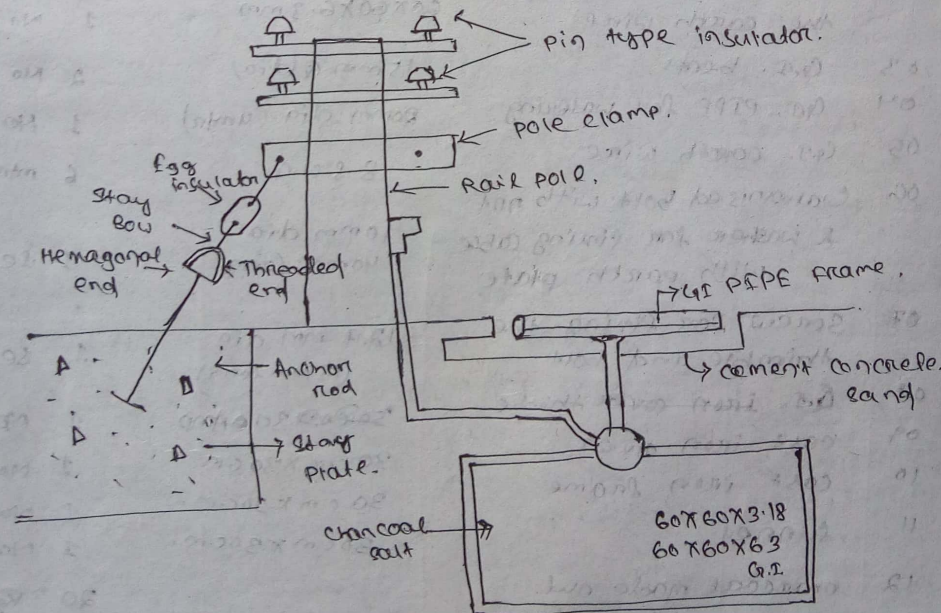 Pin type insulator.
Pole clamp.
Egg
insulator
Rail Pole.
Stay
Bow
Hemagonal
end
Threaded
end
GI PIPE Frame.
Anchor
rod
cement concrete.
sand
Stay
Plate.
Charcoal
salt
60X60X3.18
60X60X63
G.I